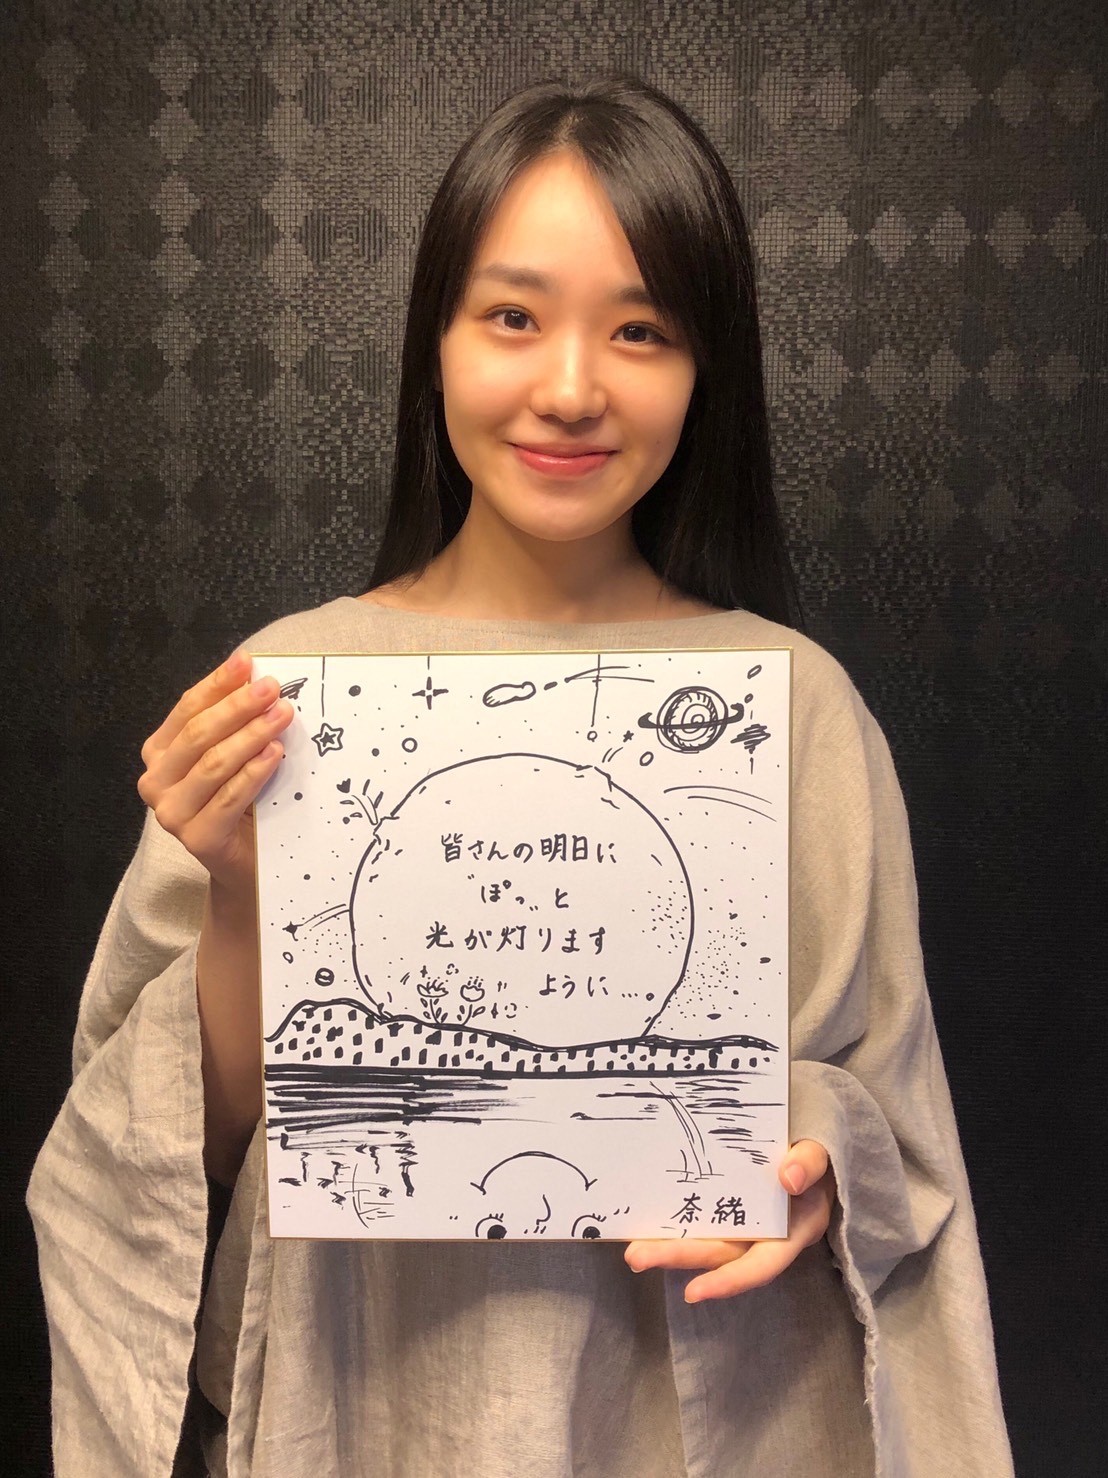 皆さんの明日に
〝ぽっ〟と
光が灯ります
ように…
奈緒